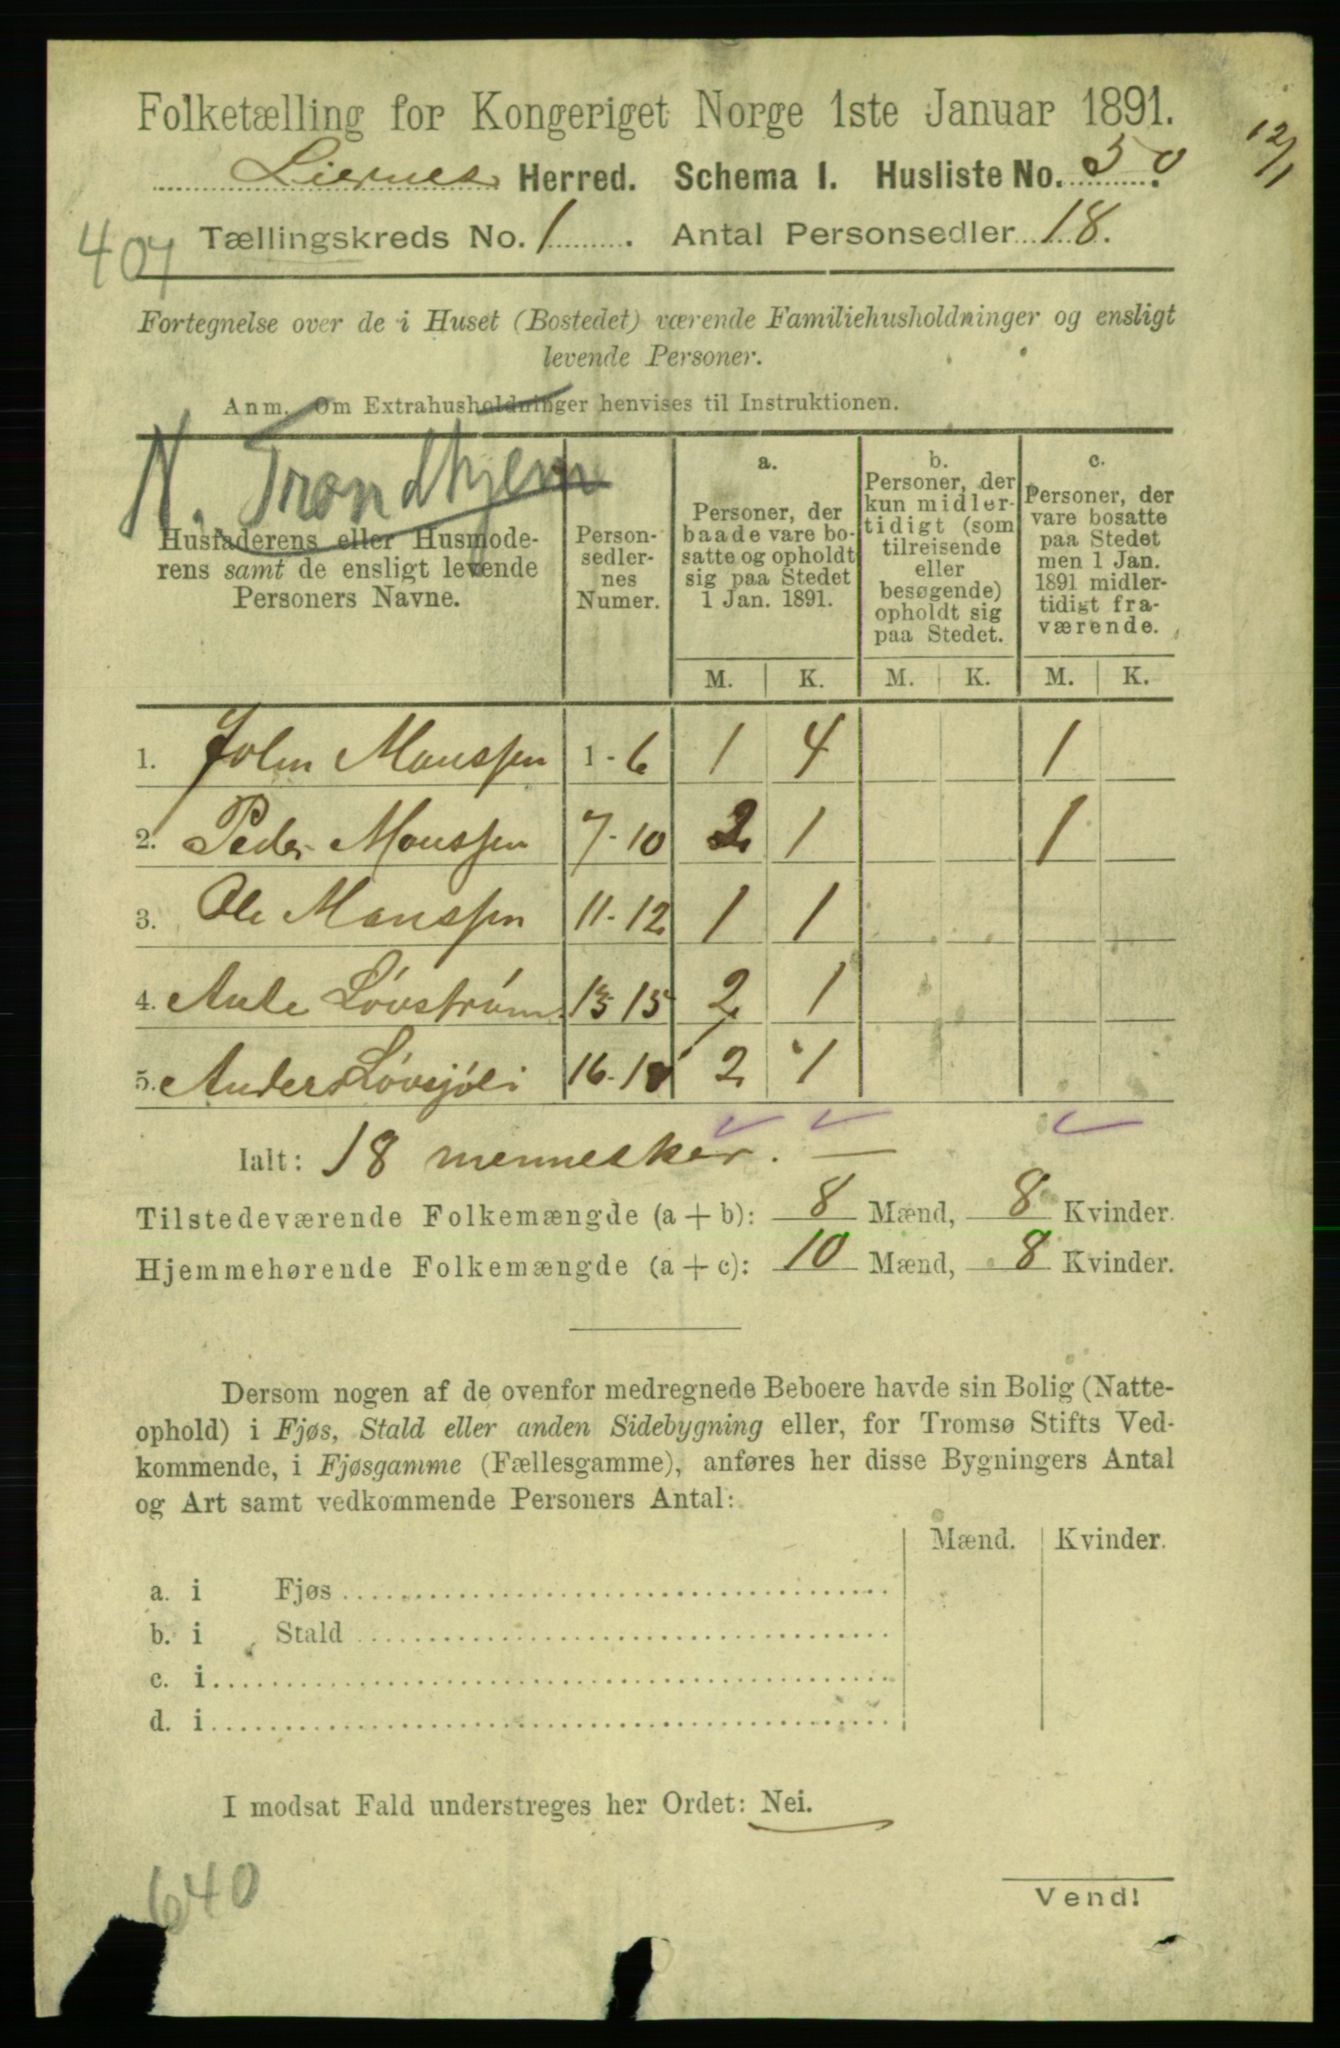 Folketælling for Kongeriget Norge 1ste Januar 1891.
12/1
Liernes Herred. Schema 1. Husliste No. 50
Tællingskreds No. 1. Antal Personsedler 18.
407
Fortegnelse over de i Huset (Bostedet) værende Familiehusholdninger og ensligt
levende Personer.
Anm. Om Extrahusholdninger henvises til Instruktionen.
N. Trondhjem
Husfaderens eller Husmode-
rens samt de ensligt levende
Personers Navne.
Person-
sedler-
nes
Numer.
a.
Personer, der
baade vare bo-
satte og opholdt
sig paa Stedet
1 Jan. 1891.
b.
Personer, der
kun midler-
tidigt (som
tilreisende
eller
besøgende)
opholdt sig
paa Stedet.
c.
Personer, der
vare bosatte
paa Stedet
men 1 Jan.
1891 midler-
tidigt fra-
værende.
M. K. M. K. M. K.
1. John Monssen 1-6 1 4 1
2. Peder Monssen 7-10 2 1 1
3. Ole Monssen 11-12 1 1
4. Ante Lövström 13-15 2 1
5. Anders Lövsjöli 16-18 2 1
Ialt: 18 mennesker. —
Tilstedeværende Folkemængde (a + b): 8 Mænd, 8 Kvinder.
Hjemmehørende Folkemængde (a + c): 10 Mænd, 8 Kvinder.
Dersom nogen af de ovenfor medregnede Beboere havde sin Bolig (Natte-
ophold) i Fjøs, Stald eller anden Sidebygning eller, for Tromsø Stifts Ved-
kommende, i Fjøsgamme (Fællesgamme), anføres her disse Bygningers Antal
og Art samt vedkommende Personers Antal:
Mænd. Kvinder.
a. i Fjøs
b. i Stald
c. i
d. i
I modsat Fald understreges her Ordet: Nei.
640
Vend!